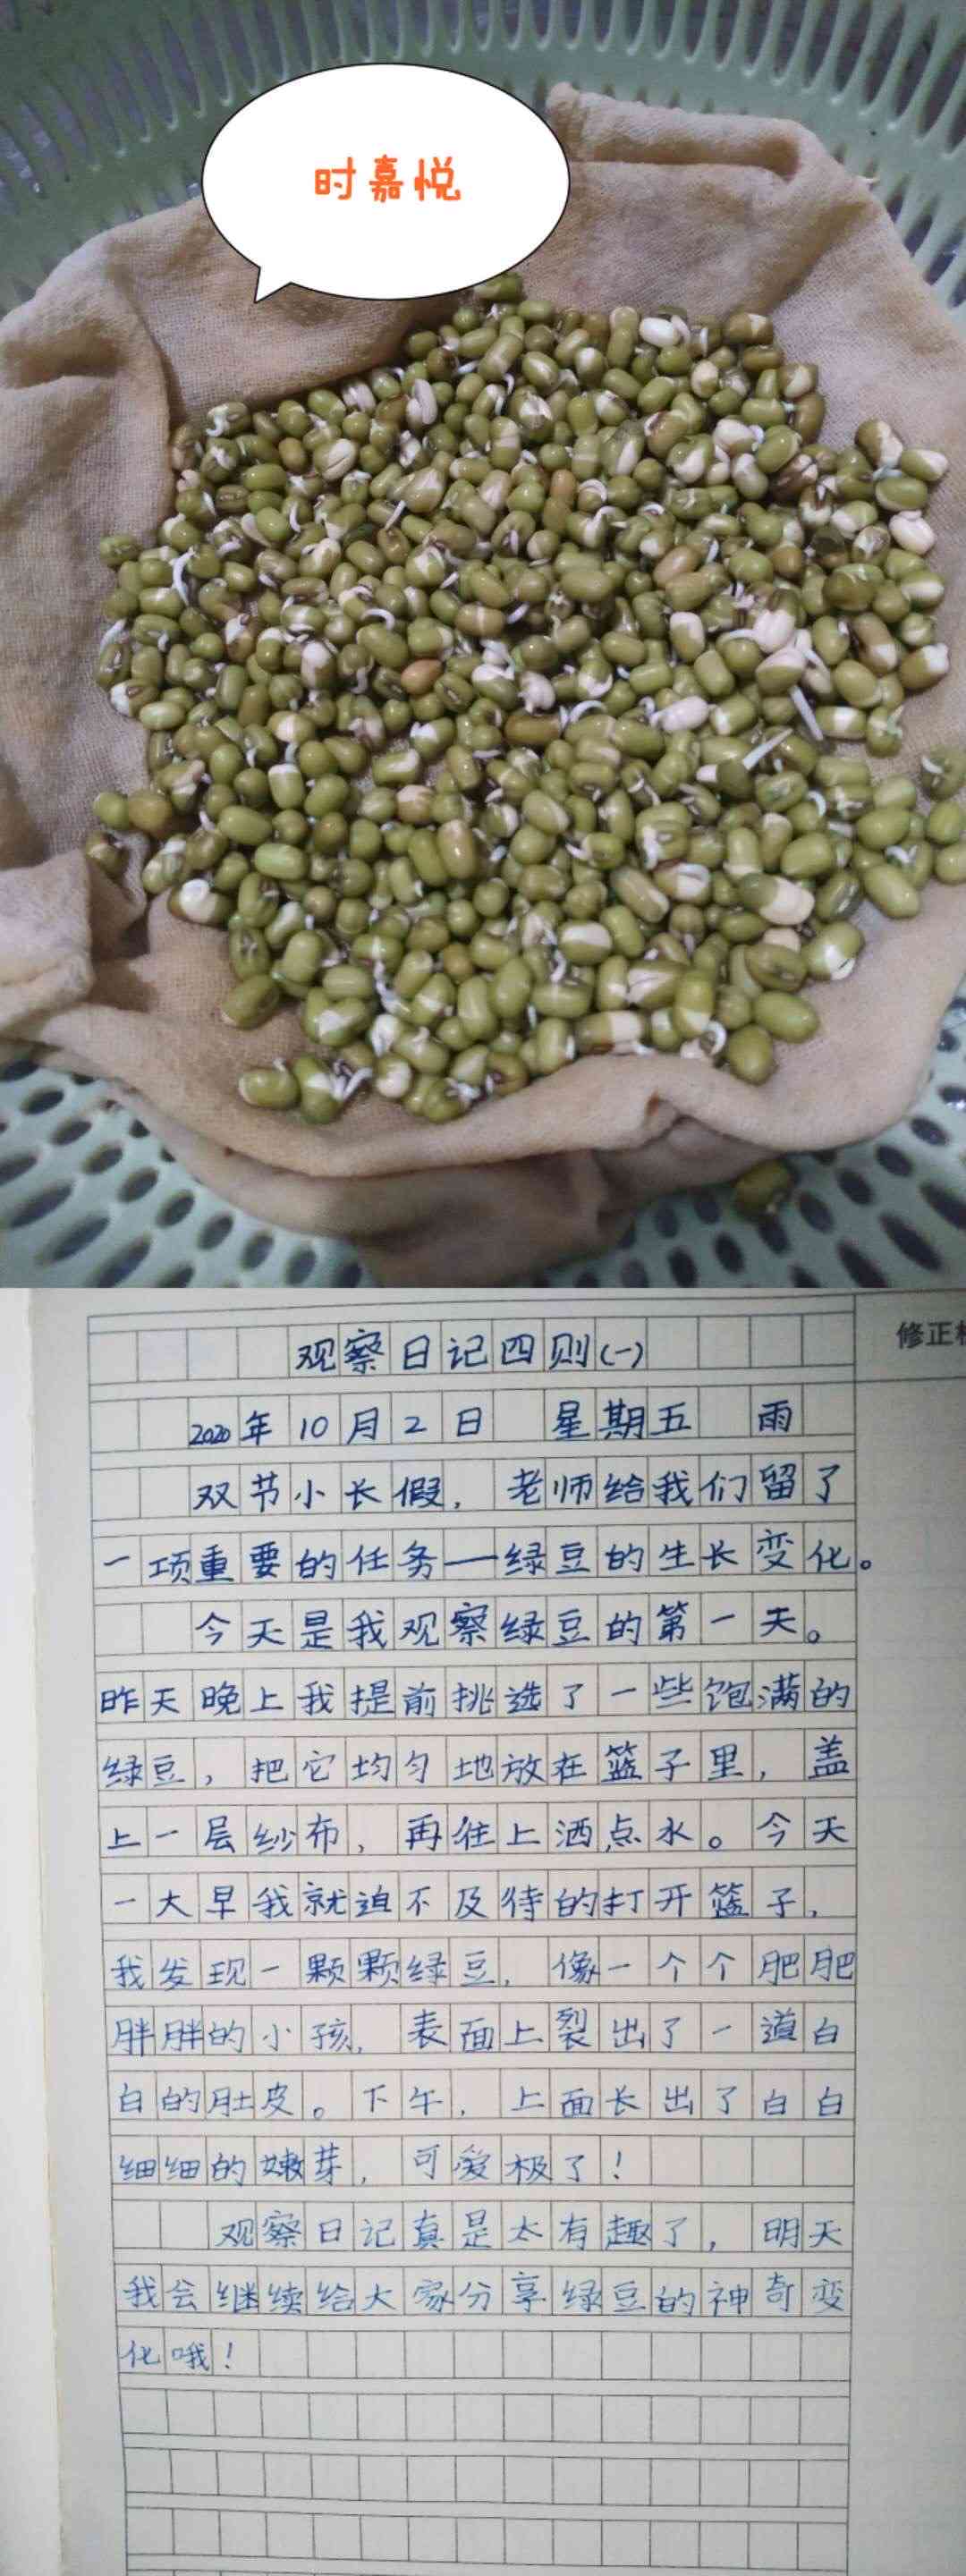 时嘉悦
修正
观察日记四则(一)
2020年10月2日 星期五 雨
双节小长假，老师给我们留了
一项重要的任务——绿豆的生长变化。
今天是我观察绿豆的第一天。
昨天晚上我提前挑选了一些饱满的
绿豆，把它均匀地放在篮子里，盖
上一层纱布，再往上洒点水。今天
一大早我就迫不及待的打开篮子，
我发现一颗颗绿豆，像一个个肥肥
胖胖的小孩，表面上裂出了一道白
白的肚皮。下午，上面长出了白白
细细的嫩芽，可爱极了！
观察日记真是太有趣了，明天
我会继续给大家分享绿豆的神奇变
化哦！